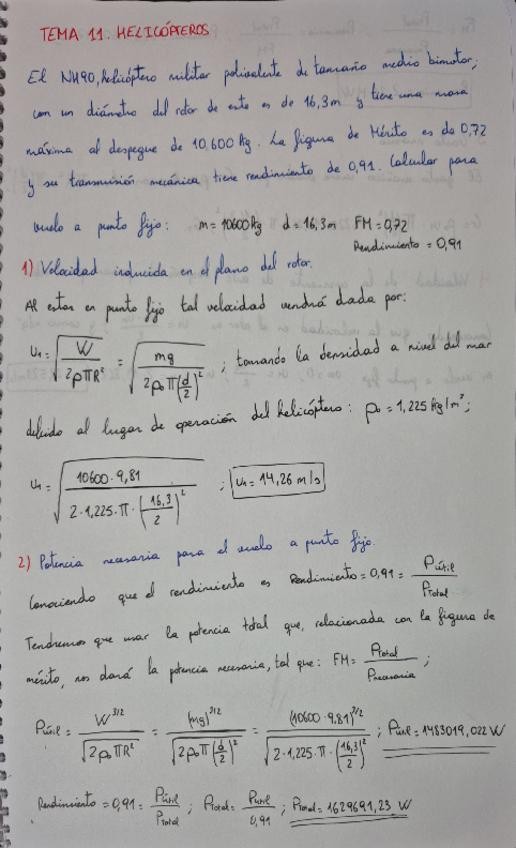 TEMA 11. HELICÓPTEROS
El NH90, helicóptero militar polivalente de tamaño medio bimotor,
con un diámetro del rotor de este es de 16,3m y tiene una masa
máxima al despegue de 10.600 kg. La figura de Mérito es de 0,72
y su transmisión mecánica tiene rendimiento de 0,91. Calcular para
vuelo a punto fijo: m = 10600 kg d = 16,3m FM = 0,72
Rendimiento = 0,91
1) Velocidad inducida en el plano del rotor.
Al estar en punto fijo tal velocidad vendrá dada por:
U₁ = √(W / 2ρπR²) = √(mg / 2ρ₀π(d/2)²) ; tomando la densidad a nivel del mar
debido al lugar de operación del helicóptero: ρ₀ = 1,225 kg/m³;
U₁ = √(10600·9,81 / 2·1,225·π·(16,3/2)²) ; U₁ = 14,26 m/s
2) Potencia necesaria para el vuelo a punto fijo.
Conociendo que el rendimiento es Rendimiento = 0,91 = Pútil / Ptotal
Tendremos que usar la potencia total que, relacionada con la figura de
mérito, nos dará la potencia necesaria, tal que: FM = Ptotal / Pnecesaria ;
Pútil = W^3/2 / √(2ρ₀πR²) = (mg)^3/2 / √(2ρ₀π(d/2)²) = (10600·9,81)^3/2 / √(2·1,225·π·(16,3/2)²) ; Pútil = 1483019,022 W
Rendimiento = 0,91 = Pútil / Ptotal ; Ptotal = Pútil / 0,91 ; Ptotal = 1629691,23 W